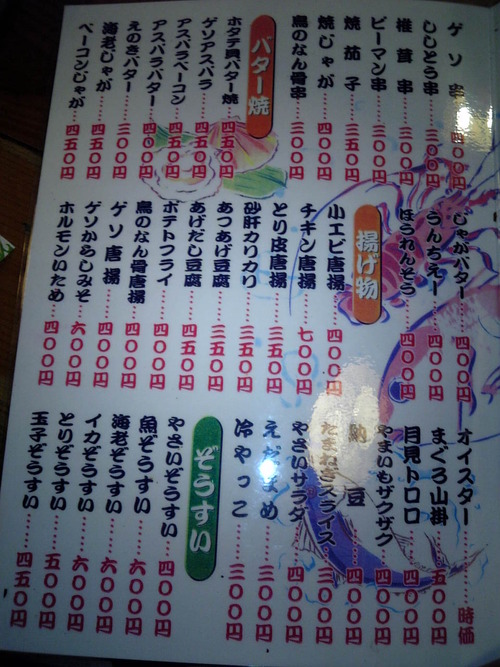 ゲソ串……四〇〇円
ししとう串……三〇〇円
椎茸串……三五〇円
ピーマン串……三〇〇円
焼茄子……三五〇円
焼じゃが……四〇〇円
鳥のなん骨串……三〇〇円
バター焼
ホタテ貝バター焼……四五〇円
ゲソアスパラ……四五〇円
アスパラベーコン……四五〇円
アスパラバター……四〇〇円
えのきバター……三〇〇円
海老じゃが……四五〇円
ベーコンじゃが……四五〇円
じゃがバター……四〇〇円
うんちぇー……四〇〇円
ほうれんそう……四〇〇円
揚げ物
小エビ唐揚……四〇〇円
チキン唐揚……七〇〇円
とり皮唐揚……三五〇円
砂肝カリカリ……三五〇円
あつあげ豆腐……三五〇円
あげだし豆腐……四五〇円
ポテトフライ……四〇〇円
鳥のなん骨唐揚……四〇〇円
ゲソ唐揚……四〇〇円
ゲソからしみそ……六〇〇円
ホルモンいため……四〇〇円
オイスター……時価
まぐろ山掛……五〇〇円
月見トロロ……四〇〇円
やまいもザクザク……四〇〇円
納豆……四〇〇円
たまねぎスライス……三〇〇円
やさいサラダ……四〇〇円
えだまめ……三〇〇円
冷やっこ……三〇〇円
ぞうすい
やさいぞうすい……四〇〇円
魚ぞうすい……六〇〇円
海老ぞうすい……六〇〇円
イカぞうすい……六〇〇円
とりぞうすい……五〇〇円
玉子ぞうすい……四五〇円